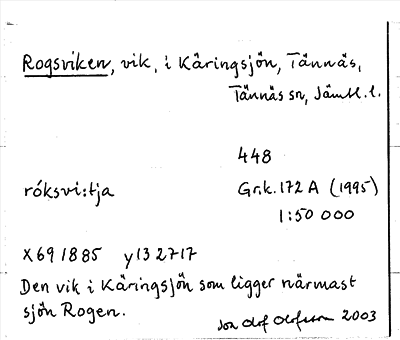 Rogsviken, vik, i Käringsjön, Tännäs,
Tännäs sn, Jämtl. l.
448
róksvi:tja Gr.k. 172 A (1995)
1:50 000
X691885 y132717
Den vik i Käringsjön som ligger närmast
sjön Rogen.
Jon Olof Olofsson 2003